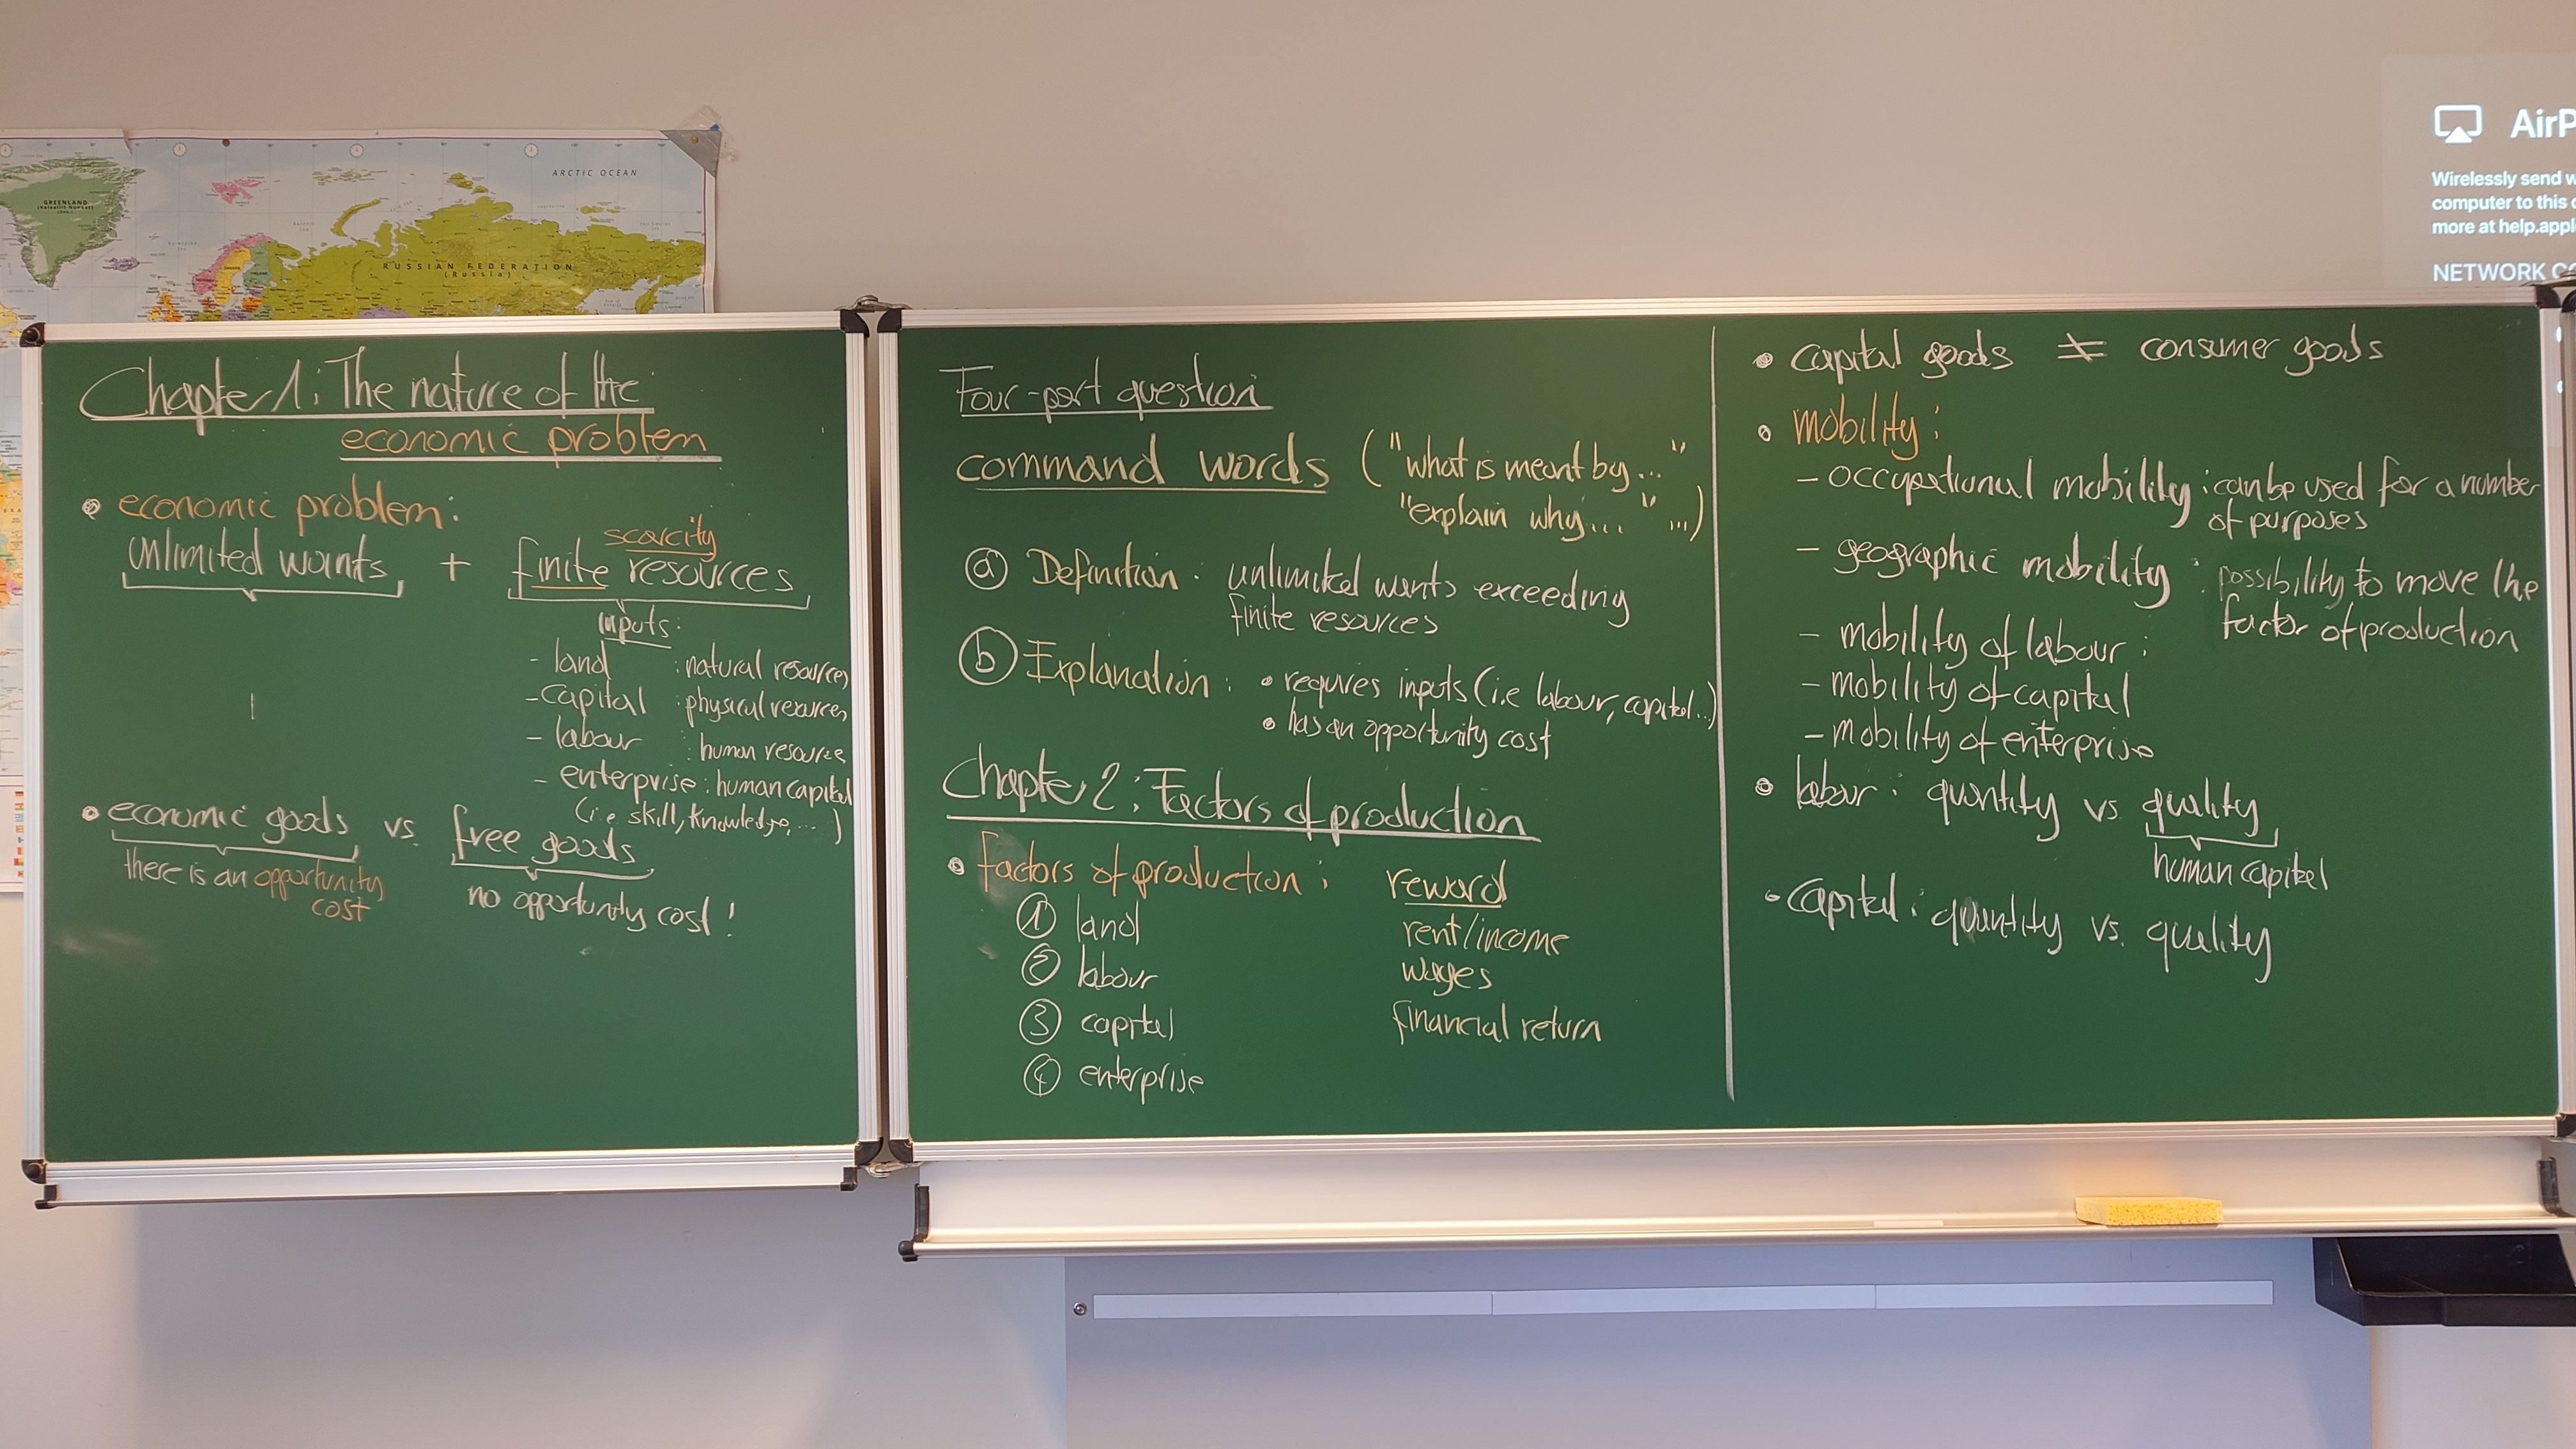 GREENLAND
(Kalaallit Nunaat)
ARCTIC OCEAN
RUSSIAN FEDERATION
(Russia)
Chapter 1: The nature of the
economic problem
• economic problem:
scarcity
unlimited wants + finite resources
inputs:
- land : natural resources
- capital : physical resources
- labour : human resource
- enterprise : human capital
(i.e skill, knowledge, ... )
• economic goods vs. free goods
there is an opportunity
cost
no opportunity cost!
Four-part question
command words ("what is meant by..."
"explain why..." ...)
ⓐ Definition : unlimited wants exceeding
finite resources
ⓑ Explanation : • requires inputs (i.e labour, capital...)
• has an opportunity cost
Chapter 2: Factors of production
• factors of production : reward
① land rent/income
② labour wages
③ capital financial return
④ enterprise
• capital goods ≠ consumer goods
• mobility :
- occupational mobility : can be used for a number
of purposes
- geographic mobility : possibility to move the
factor of production
- mobility of labour :
- mobility of capital
- mobility of enterprise
• labour : quantity vs quality
human capital
• capital : quantity vs. quality
AirP
Wirelessly send w
computer to this
more at help.appl
NETWORK CO